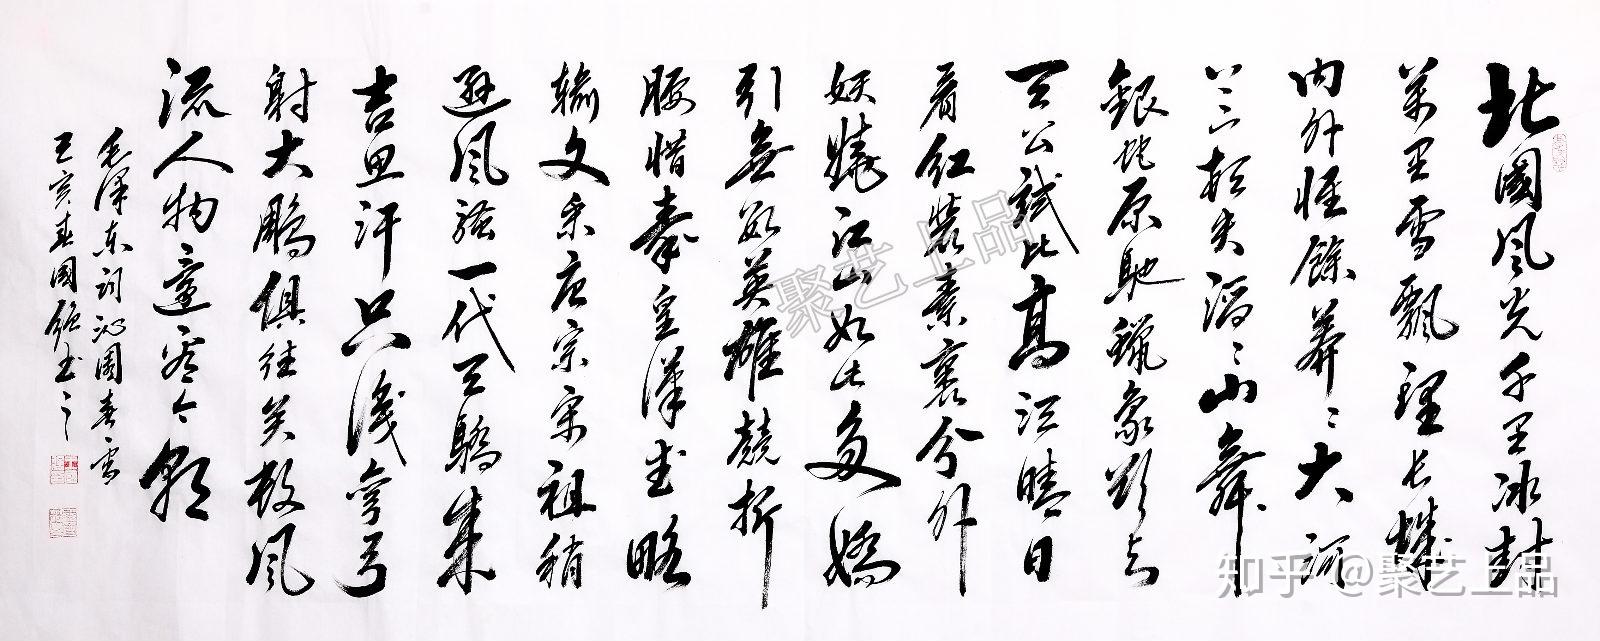 北國風光千里冰封
萬里雪飄望長城
内外惟餘莽莽大河
上下頓失滔滔山舞
銀蛇原馳蠟象欲與
天公試比高須晴日
看紅裝素裹分外
妖嬈江山如此多嬌
引無數英雄競折
腰惜秦皇漢武略
輸文采唐宗宋祖稍
遜風騷一代天驕成
吉思汗只識彎弓
射大鵰俱往矣數風
流人物還看今朝
毛澤東詞沁園春雪
己亥春國強書之
聚艺上品
知乎 @聚艺上品